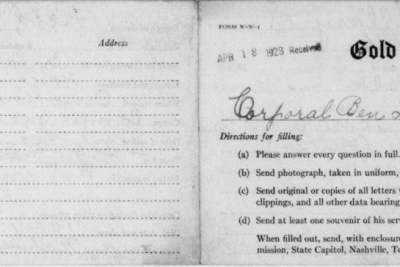 Address
FORM W-W-1
APR 18 1923 Received
Gold
Corporal Ben
Directions for filling:
(a) Please answer every question in full.
(b) Send photograph, taken in uniform,
(c) Send original or copies of all letters
clippings, and all other data bearing
(d) Send at least one souvenir of his ser
When filled out, send, with enclosure
mission, State Capitol, Nashville, Te